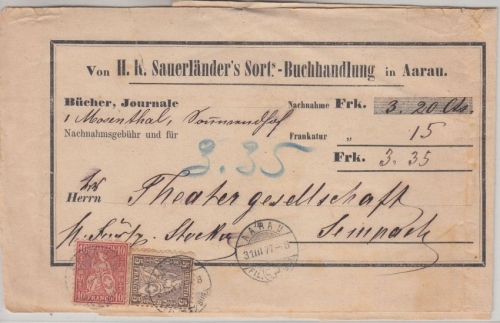 Von H. R. Sauerländer's Sort.-Buchhandlung in Aarau.
Bücher, Journale Nachnahme Frk. 3.20 Cts.
1 Mosenthal, Sonnwendhof
Nachnahmsgebühr und für Frankatur „ 15
3.35 Frk. 3.35
Herrn Theatergesellschaft
Sempach
AARAU
31 III 77
10 FRANCO 10
5 5